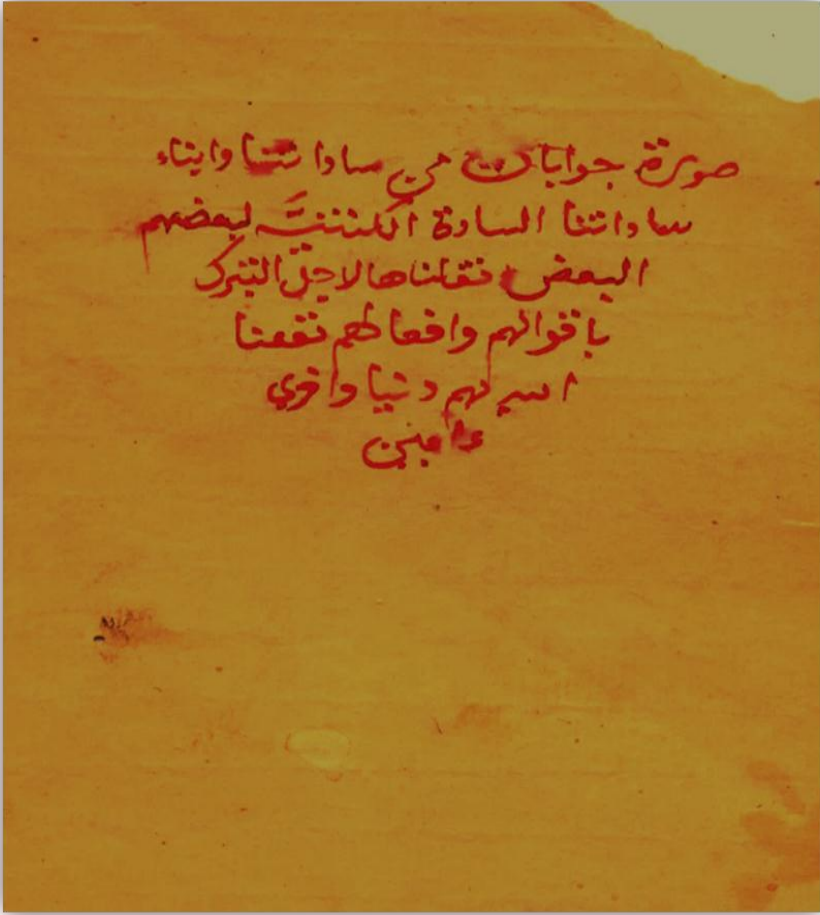 صورة جوابات من ساداتنا وابناء
ساداتنا السادة الكنتيَّة لبعضهم
البعض نقلناها لاجل التبرك
باقوالهم وافعالهم نفعنا
الله بهم دنيا واخرى
ءامين